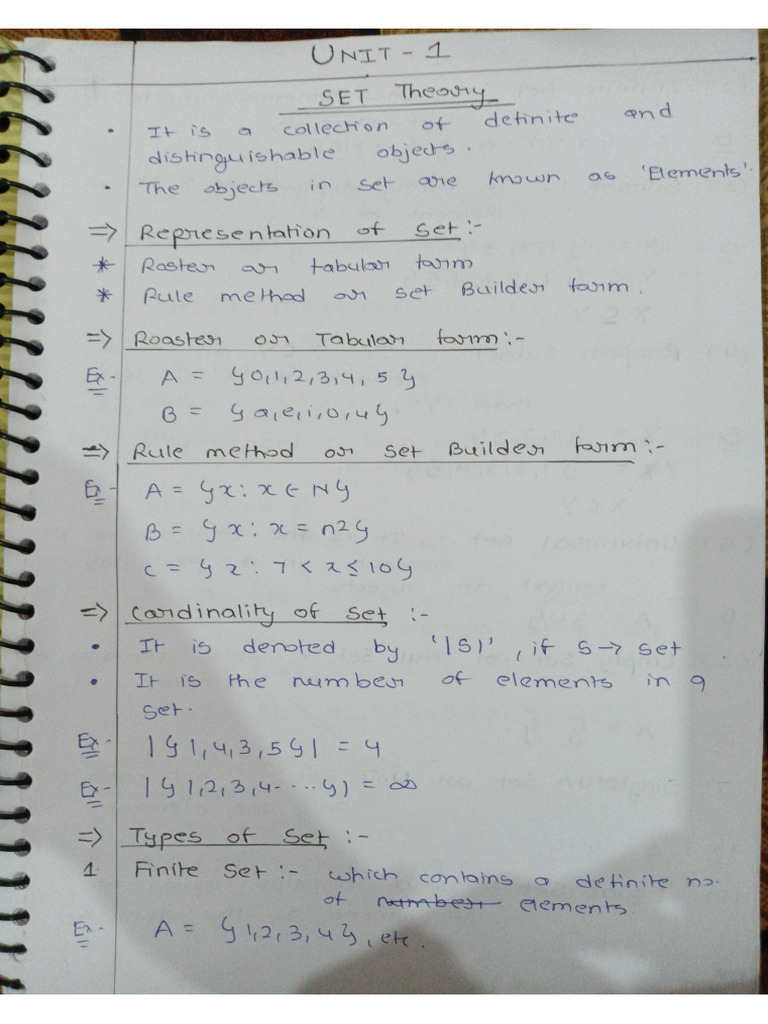 UNIT - 1
SET Theory
• It is a collection of definite and
distinguishable objects.
• The objects in set are known as 'Elements'.
=> Representation of set :-
* Roster or tabular form
* Rule method or set Builder form.
=> Roaster or Tabular form :-
Ex - A = {0,1,2,3,4,5}
B = {a,e,i,o,u}
=> Rule method or set Builder form :-
Ex - A = {x : x ∈ N}
B = {x : x = n2}
C = {x : 7 < x ≤ 10}
=> Cardinality of set :-
• It is denoted by '|S|', if S → set
• It is the number of elements in a
set.
Ex - |{1,4,3,5}| = 4
Ex - |{1,2,3,4-....}| = ∞
=> Types of Set :-
1. Finite Set :- which contains a definite no.
of number elements
Ex - A = {1,2,3,4}, etc.